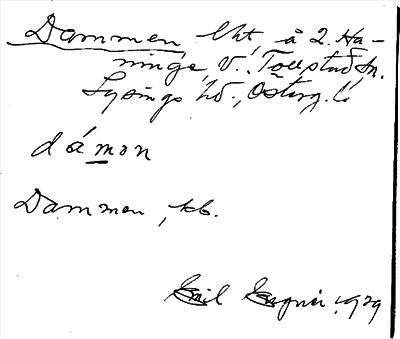 Dammen, lht, å 2. Ha-
ninge, V. Tollstad sn.
Lysings hd., Österg. l.
dámon
Dammen, kb.
Emil 1929